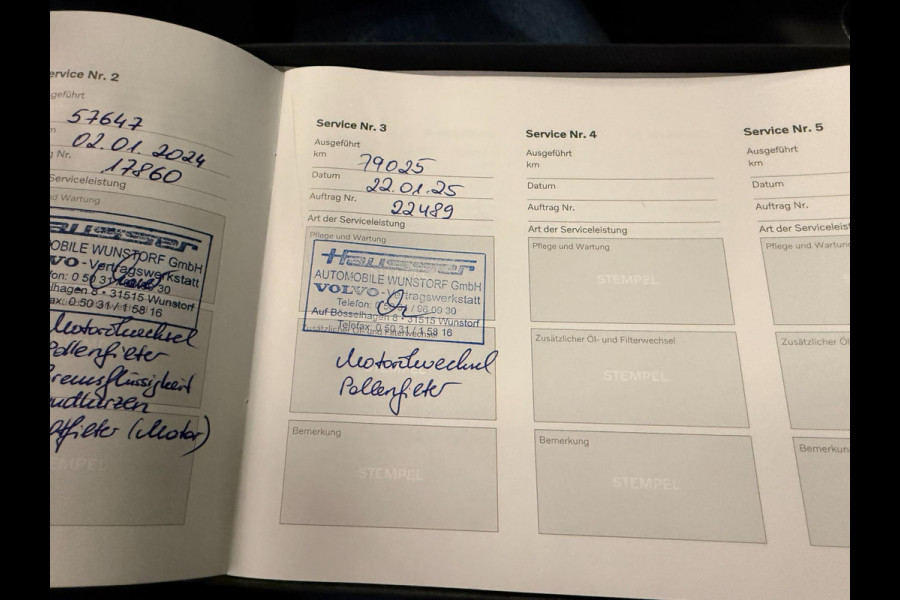 ervice Nr. 2
geführt
57647
02.01.2024
Nr.
17860
Serviceleistung
d Wartung
Haueisser
OBILE WUNSTORF GmbH
VO-Vertragswerkstatt
fon: 0 50 31 30
lhagen 8 • 31515 Wunstorf
ax: 0 50 31 / 1 58 16
Motorölwechsel
Pollenfilter
remsflüssigkeit
ndkerzen
ftfilter (Motor)
Service Nr. 3
Ausgeführt
km 79025
Datum 22.01.25
Auftrag Nr. 22489
Art der Serviceleistung
Pflege und Wartung
Haueisser
AUTOMOBILE WUNSTORF GmbH
VOLVO-Vertragswerkstatt
Telefon: 0 50 31 / 96 00 30
Auf Bösselhagen 8 • 31515 Wunstorf
Telefax: 0 50 31 / 1 58 16
Zusätzlicher Öl- und Filterwechsel
Motorölwechsel
Pollenfilter
Bemerkung
STEMPEL
Service Nr. 4
Ausgeführt
km
Datum
Auftrag Nr.
Art der Serviceleistung
Pflege und Wartung
STEMPEL
Zusätzlicher Öl- und Filterwechsel
STEMPEL
Bemerkung
STEMPEL
Service Nr. 5
Ausgeführt
km
Datum
Auftrag Nr.
Art der Serviceleist
Pflege und Wartun
Zusätzlicher Öl
Bemerkun